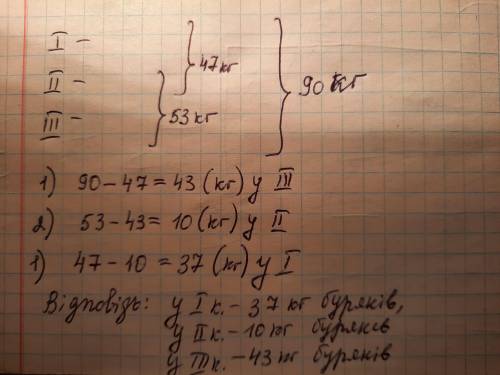 I –
47 кг
II –
90 кг
53 кг
III –
1) 90 – 47 = 43 (кг) у III
2) 53 – 43 = 10 (кг) у II
1) 47 – 10 = 37 (кг) у I
Відповідь: у I к. – 37 кг буряків,
у II к. – 10 кг буряків
у III к. – 43 кг буряків